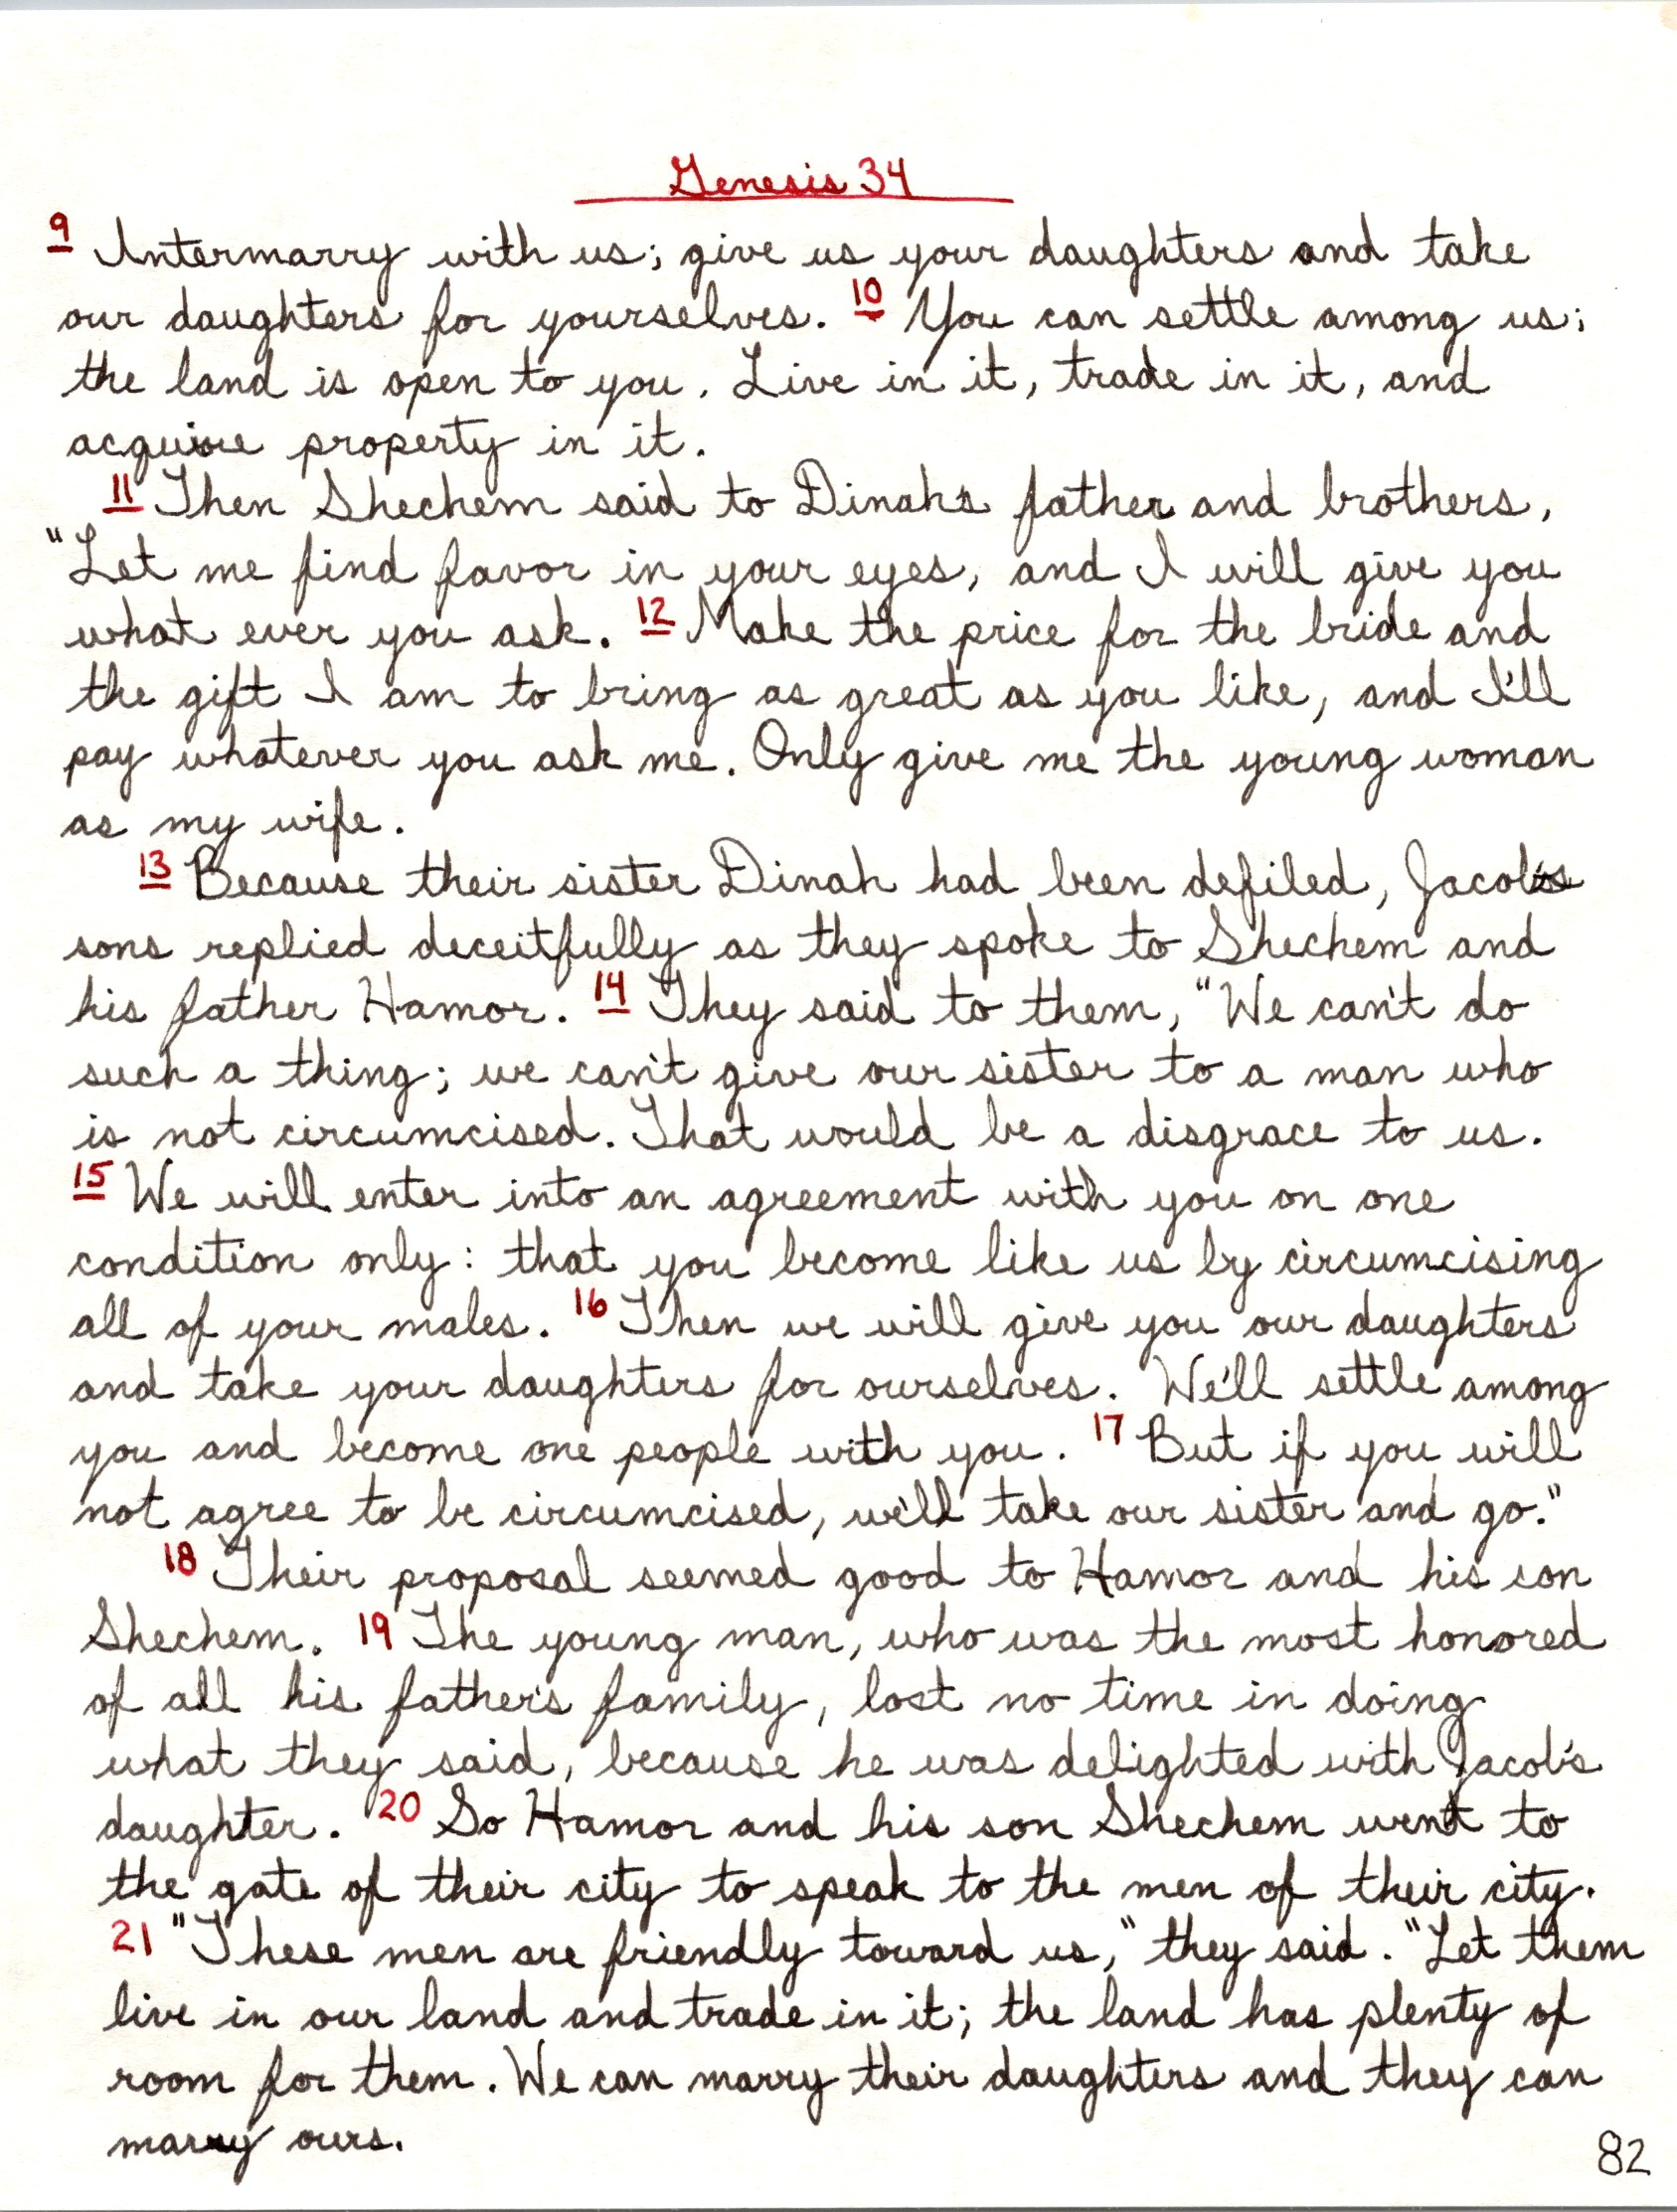 Genesis 34
9 Intermarry with us; give us your daughters and take
our daughters for yourselves. 10 You can settle among us;
the land is open to you. Live in it, trade in it, and
acquire property in it.
11 Then Shechem said to Dinah's father and brothers,
"Let me find favor in your eyes, and I will give you
what ever you ask. 12 Make the price for the bride and
the gift I am to bring as great as you like, and I'll
pay whatever you ask me. Only give me the young woman
as my wife.
13 Because their sister Dinah had been defiled, Jacob's
sons replied deceitfully as they spoke to Shechem and
his father Hamor. 14 They said to them, "We can't do
such a thing; we can't give our sister to a man who
is not circumcised. That would be a disgrace to us.
15 We will enter into an agreement with you on one
condition only: that you become like us by circumcising
all of your males. 16 Then we will give you our daughters
and take your daughters for ourselves. We'll settle among
you and become one people with you. 17 But if you will
not agree to be circumcised, we'll take our sister and go."
18 Their proposal seemed good to Hamor and his son
Shechem. 19 The young man, who was the most honored
of all his father's family, lost no time in doing
what they said, because he was delighted with Jacob's
daughter. 20 So Hamor and his son Shechem went to
the gate of their city to speak to the men of their city.
21 "These men are friendly toward us," they said. "Let them
live in our land and trade in it; the land has plenty of
room for them. We can marry their daughters and they can
marry ours.
82